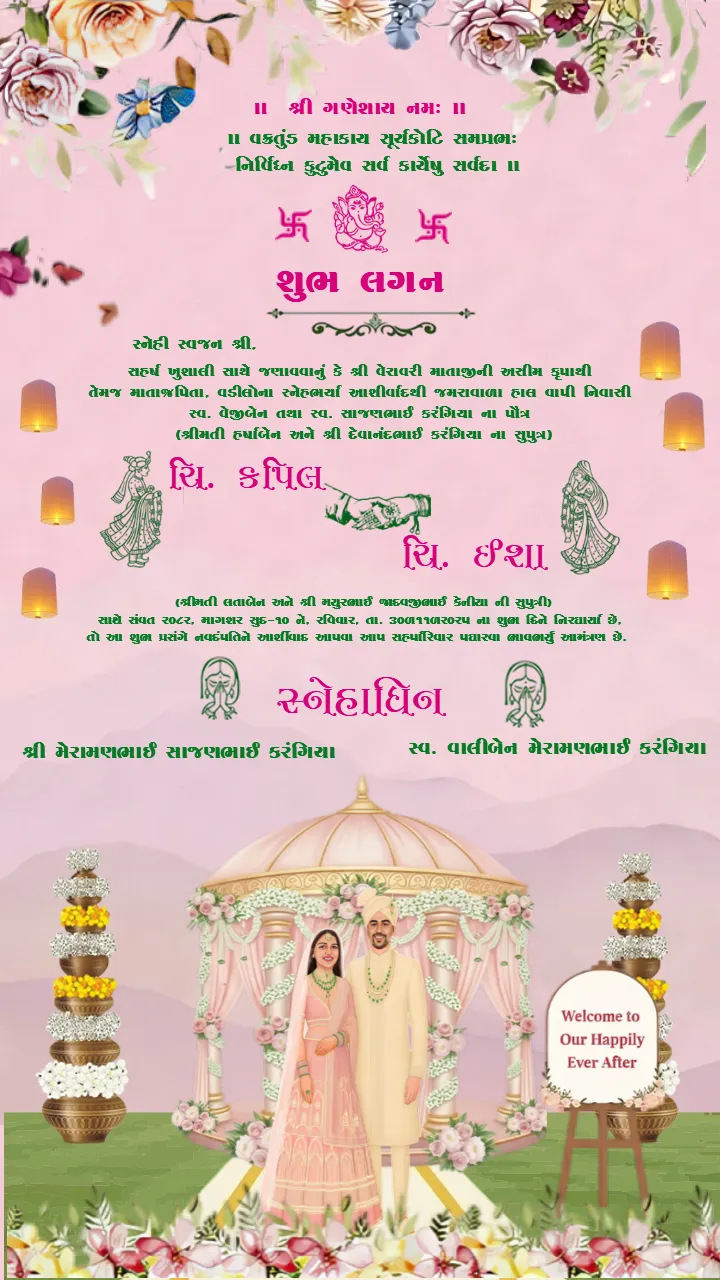 ॥ શ્રી ગણેશાય નમઃ ॥
॥ વક્રતુંડ મહાકાય સૂર્યકોટિ સમપ્રભઃ
નિર્વિઘ્ન કુટુમેવ સર્વ કાર્યેષુ સર્વદા ॥
શુભ લગન
સ્નેહી સ્વજન શ્રી,
સહર્ષ ખુશાલી સાથે જણાવવાનું કે શ્રી વેરાવરી માતાજીની અસીમ કૃપાથી
તેમજ માતાજીપિતા, વડીલોના સ્નેહભર્યા આશીર્વાદથી જમરાવાળા હાલ વાપી નિવાસી
સ્વ. વેજીબેન તથા સ્વ. સાજણભાઈ કરંગિયા ના પૌત્ર
(શ્રીમતી હર્ષાબેન અને શ્રી દેવાનંદભાઈ કરંગિયા ના સુપુત્ર)
ચિ. કપિલ
ચિ. ઈશા
(શ્રીમતી લતાબેન અને શ્રી મયુરભાઈ જાદવજીભાઈ કેનીયા ની સુપુત્રી)
સાથે સંવત ૨૦૮૨, માગશર સુદ-૧૦ ને, રવિવાર, તા. ૩૦ળ૧૧ળ૨૦૨૫ ના શુભ દિને નિરધાર્યા છે,
તો આ શુભ પ્રસંગે નવદંપતિને આર્શીવાદ આપવા આપ સહપરિવાર પધારવા ભાવભર્યું આમંત્રણ છે.
સ્નેહાધિન
શ્રી મેરામણભાઈ સાજણભાઈ કરંગિયા
સ્વ. વાલીબેન મેરામણભાઈ કરંગિયા
Welcome to
Our Happily
Ever After